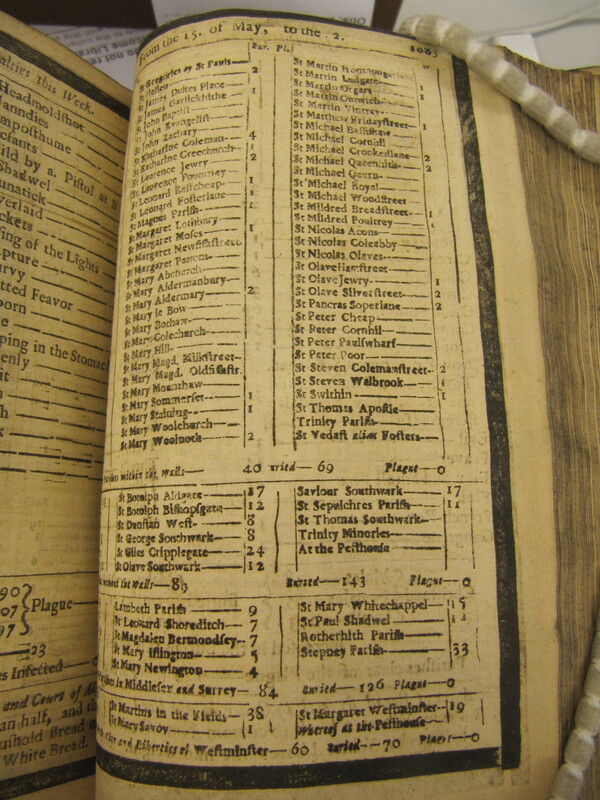 From the 15. of May, to the 2. 1683
Bur. Pl.
St Gregories by St Pauls 2
St Hellen 1
St James Dukes Place 1
St James Garlickhithe 1
St John Baptist
St John Evangelist
St John Zachary
St Katharine Coleman 4
St Katharine Creechurch 1
St Lawrence Jewry 2
St Lawrence Pountney
St Leonard Eastcheap 1
St Leonard Fosterlane
St Magnus Parish 2
St Margaret Lothbury
St Margaret Moses 1
St Margaret Newfishstreet
St Margaret Pattons
St Mary Abchurch
St Mary Aldermanbury
St Mary Aldermary 2
St Mary le Bow
St Mary Bothaw
St Mary Colechurch
St Mary Hill
St Mary Magd. Milkstreet
St Mary Magd. Oldfishstr.
St Mary Mounthaw
St Mary Sommerset 1
St Mary Staining 1
St Mary Woolchurch
St Mary Woolnoth 2
St Martin Ludgate
St Martin Orgars 1
St Martin Outwich
St Martin Vintrey
St Matthew Fridaystreet 1
St Michael Bassishaw
St Michael Cornhil
St Michael Crookedlane 2
St Michael Queenhith 2
St Michael Quern
St Michael Royal
St Michael Woodstreet
St Mildred Breadstreet 1
St Mildred Poultrey
St Nicolas Acons
St Nicolas Coleabby
St Nicolas Olaves
St Olave Hartstreet
St Olave Jewry 1
St Olave Silverstreet 2
St Pancras Soperlane 2
St Peter Cheap
St Peter Cornhil
St Peter Paulswharf
St Peter Poor
St Steven Colemanstreet 2
St Steven Walbrook
St Swithin 1
St Thomas Apostle
Trinity Parish
St Vedast alias Fosters
within the Walls 40 Buried 69 Plague 0
St Botolph Aldgate 17
St Botolph Bishopsgate 12
St Dunstan West 8
St George Southwark 8
St Giles Cripplegate 24
St Olave Southwark 12
Saviour Southwark 17
St Sepulchres Parish 11
St Thomas Southwark
Trinity Minories
At the Pesthouse
without the Walls 89 Buried 143 Plague 0
Lambeth Parish 9
St Leonard Shoreditch 7
St Magdalen Bermondsey 7
St Mary Islington 5
St Mary Newington 4
St Mary Whitechappel 15
St Paul Shadwel
Rotherhith Parish
Stepney Parish 33
in Middlesex and Surrey 84 Buried 126 Plague 0
St Martins in the Fields 38
St Mary Savoy 1
St Margaret Westminster 19
Whereof at the Pesthouse
City and Liberties of Westminster 60 Buried 70 Plague 0
this Week.
Headmoldshot
by a. Pistol at S
Shadwel
of the Lights
tted Feavor
in the Stomac
Plague
23
es Infected
and Court of Al
an half, and
White Bread.